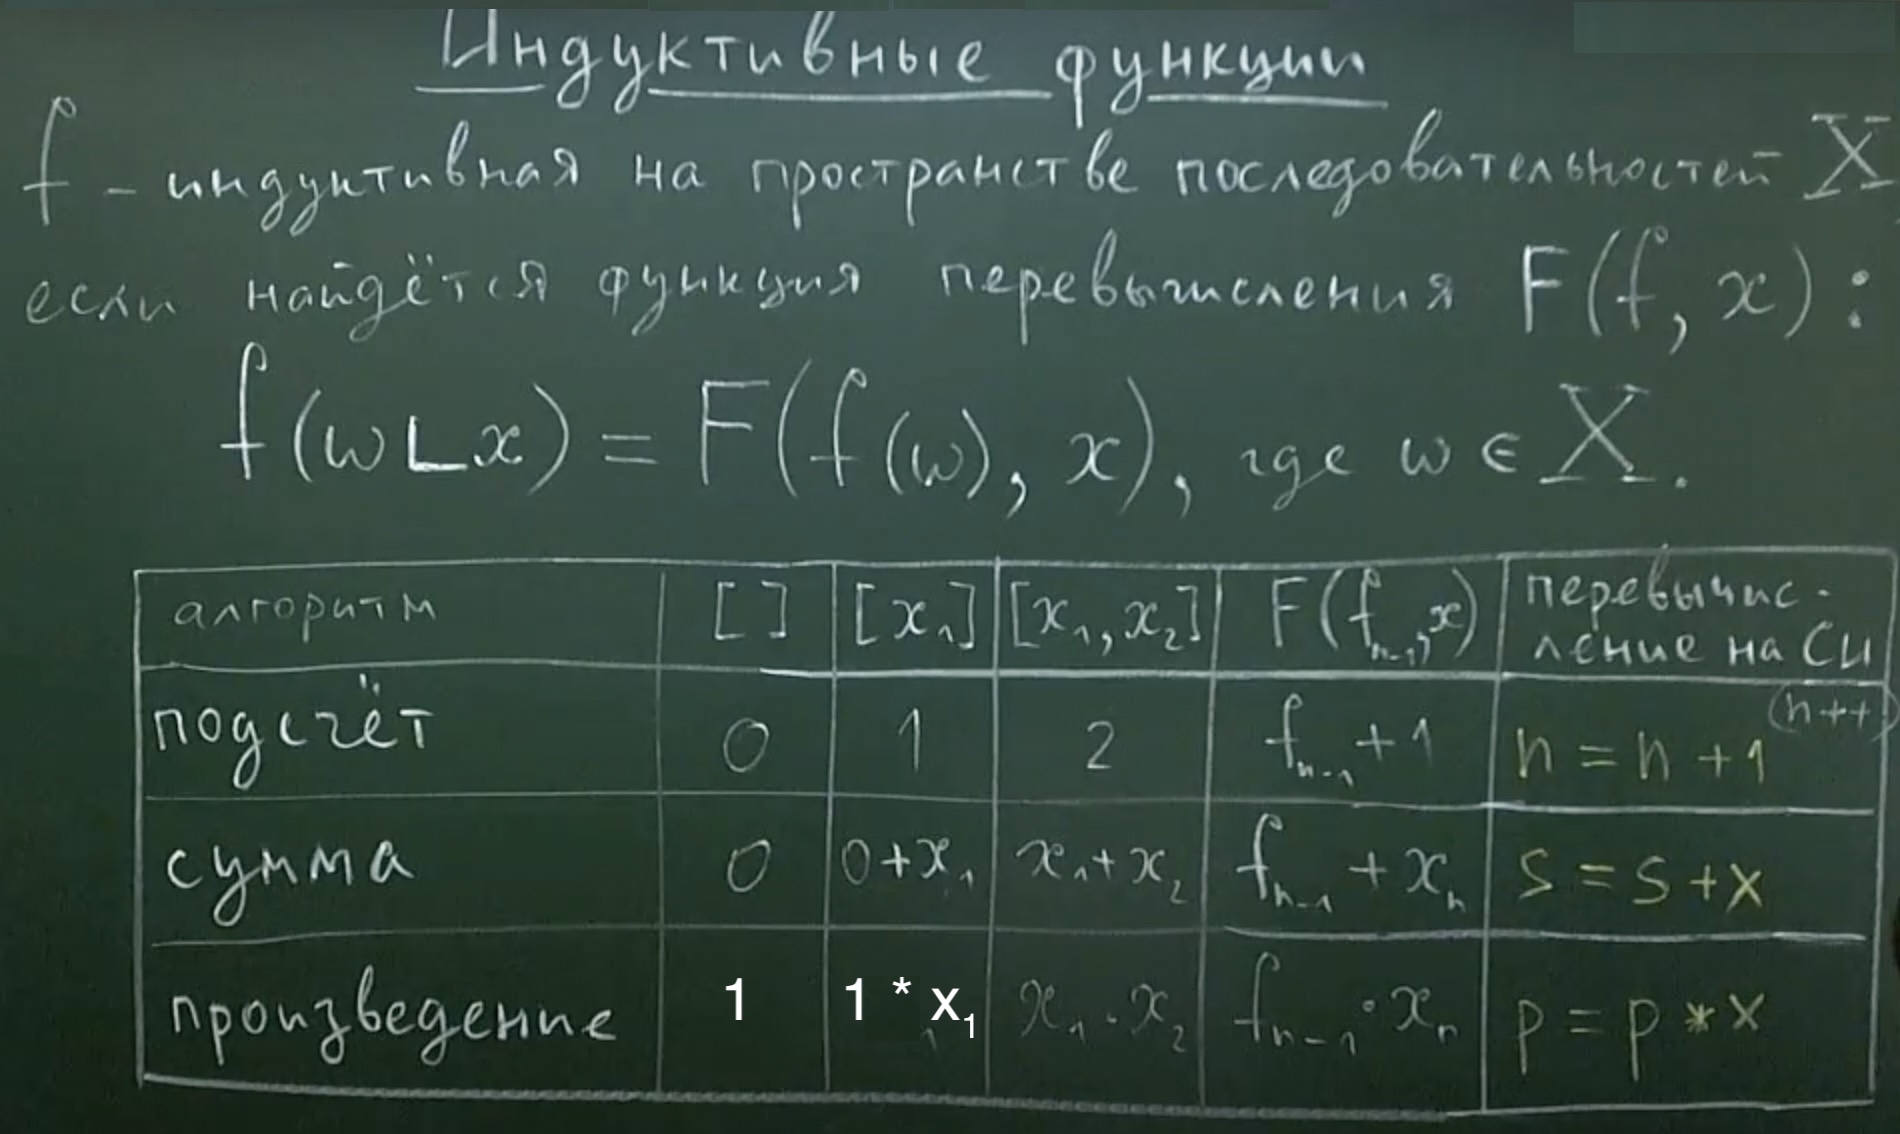 Индуктивные функции
f - индуктивная на пространстве последовательностей X
если найдётся функция перевычисления F(f, x):
f(ω∟x) = F(f(ω), x), где ω ∈ X.
алгоритм [ ] [x₁] [x₁, x₂] F(fₙ₋₁, x) перевычис-
ление на Си
подсчёт 0 1 2 fₙ₋₁ + 1 n = n + 1 (n++)
сумма 0 0+x₁ x₁+x₂ fₙ₋₁ + xₙ s = s + x
произведение 1 1 * x₁ x₁·x₂ fₙ₋₁·xₙ p = p * x